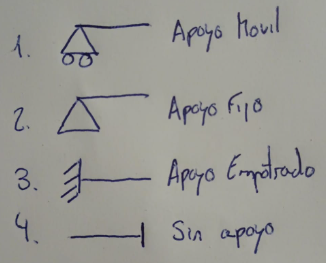 1. Apoyo Movil
2. Apoyo Fijo
3. Apoyo Empotrado
4. Sin apoyo